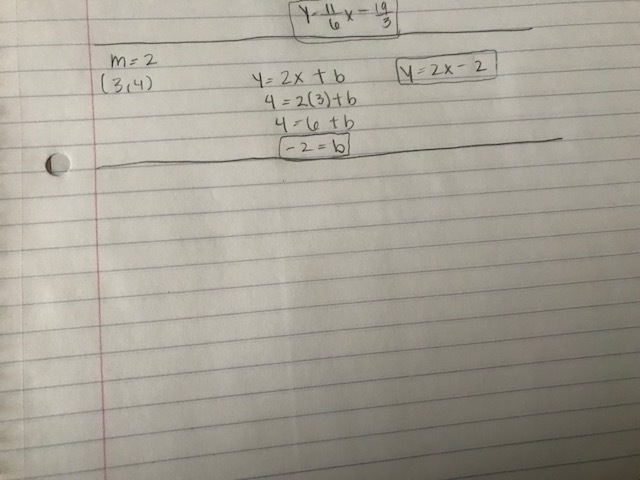 y = 11/6 x - 19/3
m = 2
(3,4)
y = 2x + b
4 = 2(3) + b
4 = 6 + b
-2 = b
y = 2x - 2